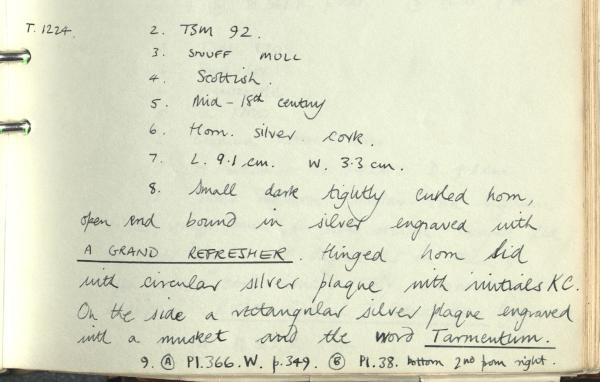 T. 1224. 2. TSM 92.
3. SNUFF MULL
4. Scottish.
5. Mid-18th century
6. Horn. silver. cork.
7. L. 9.1 cm. W. 3.3 cm.
8. Small dark tightly curled horn,
open end bound in silver engraved with
A GRAND REFRESHER. Hinged horn lid
with circular silver plaque with initials KC.
On the side a rectangular silver plaque engraved
with a musket and the word Tarmentum.
9. Ⓐ Pl.366. W. p.349. Ⓑ Pl.38. bottom 2nd from right.